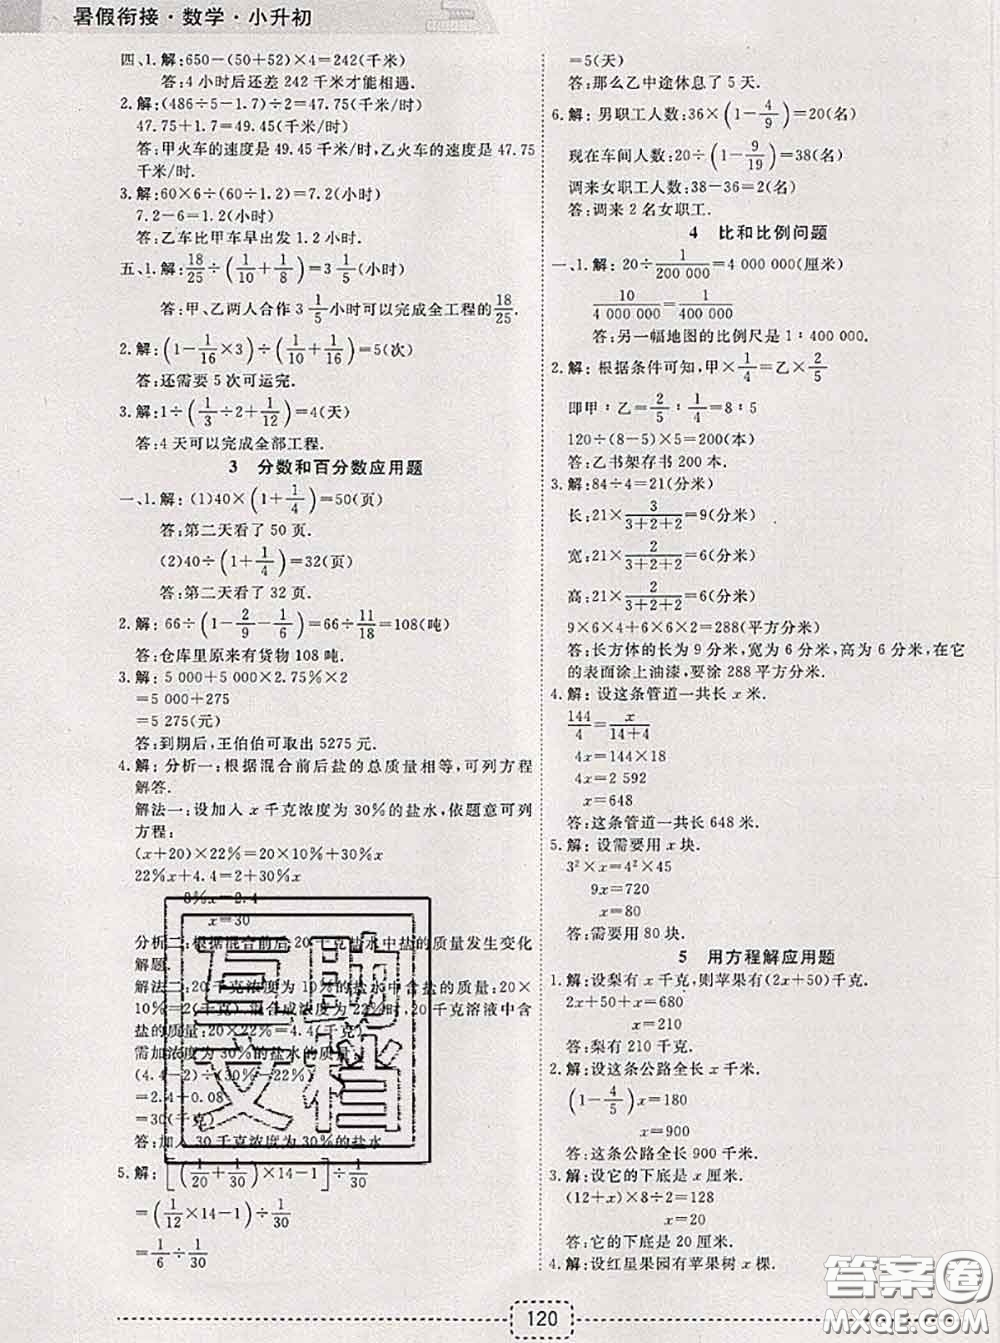 暑假衔接·数学·小升初
四、1.解:650-(50+52)×4=242(千米)
答:4小时后还差242千米才能相遇.
2.解:(486÷5-1.7)÷2=47.75(千米/时)
47.75+1.7=49.45(千米/时)
答:甲火车的速度是49.45千米/时,乙火车的速度是47.75
千米/时.
3.解:60×6÷(60÷1.2)=7.2(小时)
7.2-6=1.2(小时)
答:乙车比甲车早出发1.2小时.
五、1.解:18/25÷(1/10+1/8)=3 1/5(小时)
答:甲、乙两人合作3 1/5小时可以完成全工程的18/25.
2.解:(1-1/16×3)÷(1/10+1/16)=5(次)
答:还需要5次可运完.
3.解:1÷(1/3÷2+1/12)=4(天)
答:4天可以完成全部工程.
3 分数和百分数应用题
一、1.解:(1)40×(1+1/4)=50(页)
答:第二天看了50页.
(2)40÷(1+1/4)=32(页)
答:第二天看了32页.
2.解:66÷(1-2/9-1/6)=66÷11/18=108(吨)
答:仓库里原来有货物108吨.
3.解:5 000+5 000×2.75%×2
=5 000+275
=5 275(元)
答:到期后,王伯伯可取出5275元.
4.解:分析一:根据混合前后盐的总质量相等,可列方程
解答.
解法一:设加入x千克浓度为30%的盐水,依题意可列
方程:
(x+20)×22%=20×10%+30%x
22%x+4.4=2+30%x
8%x=2.4
x=30
分析二:根据混合前后20千克盐水中盐的质量发生变化
解题.
解法二:20千克浓度为10%的盐水中含盐的质量:20×
10%=2(千克),混合成浓度为22%时,20千克溶液中含
盐的质量:20×22%=4.4(千克)
需加浓度为30%的盐水的质量:
(4.4-2)÷(30%-22%)
=2.4÷0.08
=30(千克)
答:加入30千克浓度为30%的盐水
5.解:[(1/20+1/30)×14-1]÷1/30
=(1/12×14-1)÷1/30
=1/6÷1/30
=5(天)
答:那么乙中途休息了5天.
6.解:男职工人数:36×(1-4/9)=20(名)
现在车间人数:20÷(1-9/19)=38(名)
调来女职工人数:38-36=2(名)
答:调来2名女职工.
4 比和比例问题
一、1.解:20÷1/200 000=4 000 000(厘米)
10/4 000 000=1/400 000
答:另一幅地图的比例尺是1:400 000.
2.解:根据条件可知,甲×1/4=乙×2/5
即甲:乙=2/5:1/4=8:5
120÷(8-5)×5=200(本)
答:乙书架存书200本.
3.解:84÷4=21(分米)
长:21×3/3+2+2=9(分米)
宽:21×2/3+2+2=6(分米)
高:21×2/3+2+2=6(分米)
9×6×4+6×6×2=288(平方分米)
答:长方体的长为9分米,宽为6分米,高为6分米,在它
的表面涂上油漆,要涂288平方分米.
4.解:设这条管道一共长x米.
144/4=x/14+4
4x=144×18
4x=2 592
x=648
答:这条管道一共长648米.
5.解:设需要用x块.
3²×x=4²×45
9x=720
x=80
答:需要用80块.
5 用方程解应用题
1.解:设梨有x千克,则苹果有(2x+50)千克.
2x+50+x=680
x=210
答:梨有210千克.
2.解:设这条公路全长x千米.
(1-4/5)x=180
x=900
答:这条公路全长900千米.
3.解:设它的下底是x厘米.
(12+x)×8÷2=128
x=20
答:它的下底是20厘米.
4.解:设红星果园有苹果树x棵.
120
互助
文档
答案圈
MXQE.COM